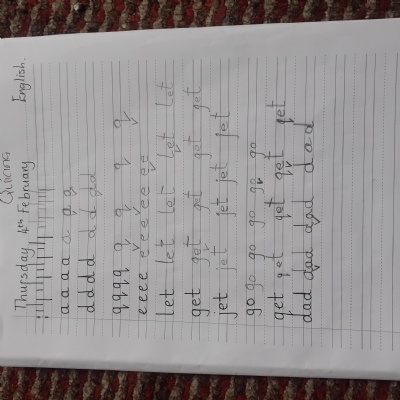 Thursday 4th February English.
a a a a a a a
d d d d d d d d
q q q q q q q q
e e e e e e e e e e e
let let let let let
get get get get get
jet jet jet jet jet
go go go go go go
get get get get get
dad dad dad dad